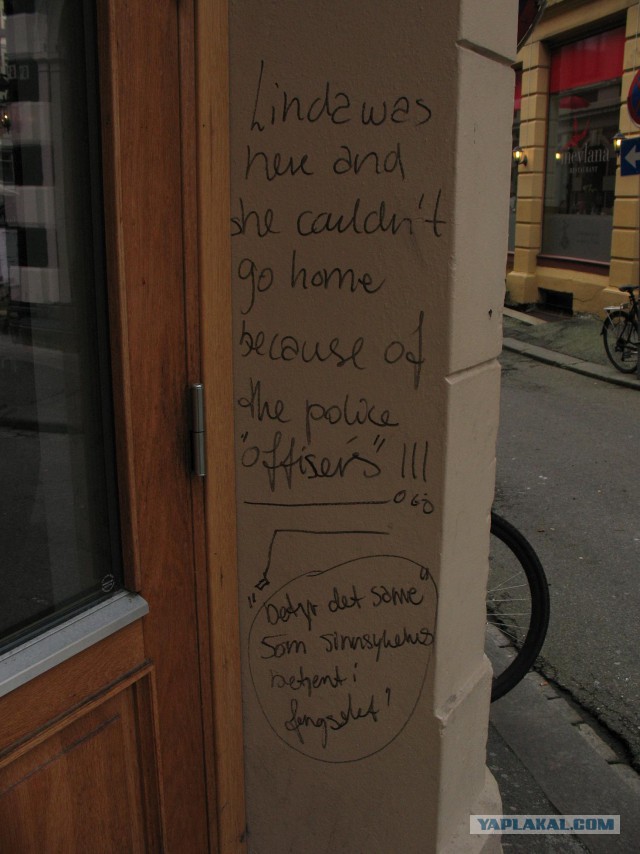 Linda was
here and
she couldn't
go home
because of
the police
"offisérs" !!!
"Betyr det same"
som sinnsykehus
betjent i
fengselet"
mevlana
RESTAURANT
YAPLAKAL.COM